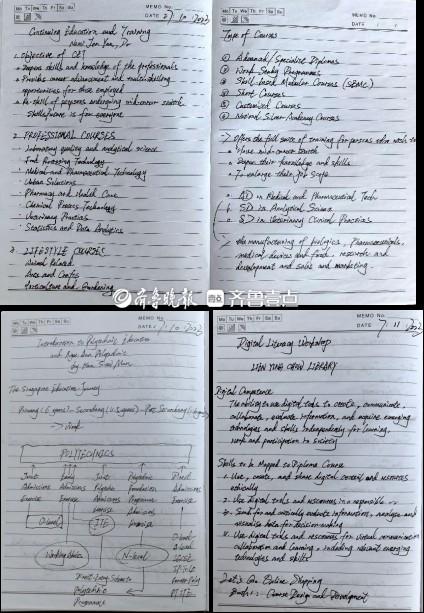 MEMO No.
Mo Tu We Th Fr Sa Su
DATE 2/10/2022
Continuing Education and Training
1. Objective of CET
• Deepens skills and knowledge of the professionals
• Provides career advancement and multi-skilling
opportunities for those employed
• Re-skill of persons undergoing mid-career switch
Skillsfuture is for everyone
2. PROFESSIONAL COURSES
- Laboratory quality and analytical science
- Food Processing Technology
- Medical and Pharmaceutical Technology
- Urban Solutions
- Pharmacy and Health Care
- Chemical Process Technology
- Veterinary Practices
- Statistics and Data Analytics
3. LIFESTYLE COURSES
- Animal Related
- Arts and Crafts
- Horticulture and Gardening
MEMO No.
Mo Tu We Th Fr Sa Su
DATE / /
Type of Courses
① Advanced/Specialist Diplomas
② Work-Study Programmes
③ Skill-based Modular Courses (SBMC)
④ Short Courses
⑤ Customised Courses
⑥ National Silver Academy Courses
> Offers the full suite of training for persons who wish to
• Have mid-career switch
• Deepen their knowledge and skills
• To enlarge their job scope
• AD in Medical and Pharmaceutical Tech
• SD in Analytical Science
• SD in Veterinary Clinical Practices
> the manufacturing of biologics, pharmaceuticals,
medical devices and food, research and
development and sales and marketing.
齐鲁晚报 齐鲁壹点
MEMO No.
Mo Tu We Th Fr Sa Su
DATE / /10/2022
Introduction to Polytechnic Education
and Ngee Ann Polytechnic
The Singapore Education Journey
Primary (6 years) - Secondary (4-5 years) - Post Secondary
→ Work
POLYTECHNICS
Joint Admissions Exercise
Early Admissions Exercise
Joint Polytechnic Admissions Exercise
Polytechnic Foundation Programme Admissions Exercise
Direct Admissions Exercise
O-level
ITE
Working Adults
N-level
Direct-Entry-Scheme to
Polytechnic
Programme
MEMO No.
Mo Tu We Th Fr Sa Su
DATE 7/11/2022
Digital Literacy Workshop
LIEN YING CHOW LIBRARY
Digital Competence
The ability to use digital tools to create, communicate,
collaborate, evaluate information, and acquire emerging
technologies and skills independently for learning,
work and participation in society
Skills to be Mapped to Diploma Course
I. Use, create, and share digital content and resources
ethically
II. Use Digital tools and resources in a responsible
III. Search for and critically evaluate information, analyse and
visualise data for decision-making
IV. Use digital tools and resources for virtual communication,
collaboration and learning, including relevant emerging
technologies and skills
Let's Go Online Shopping
Course Design and Development